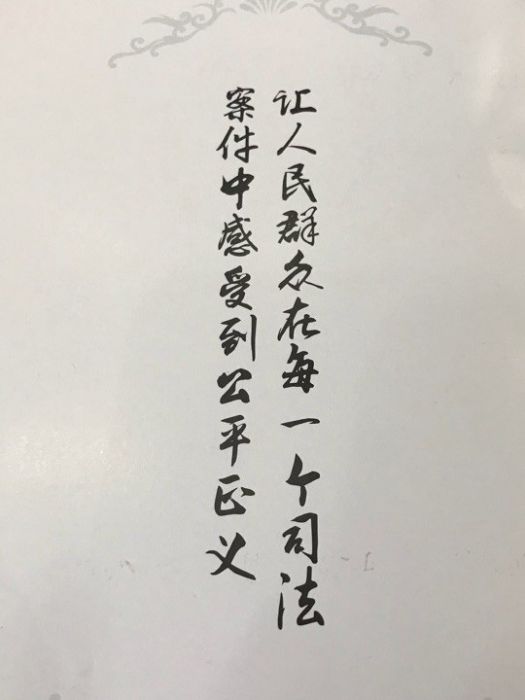 让人民群众在每一个司法
案件中感受到公平正义